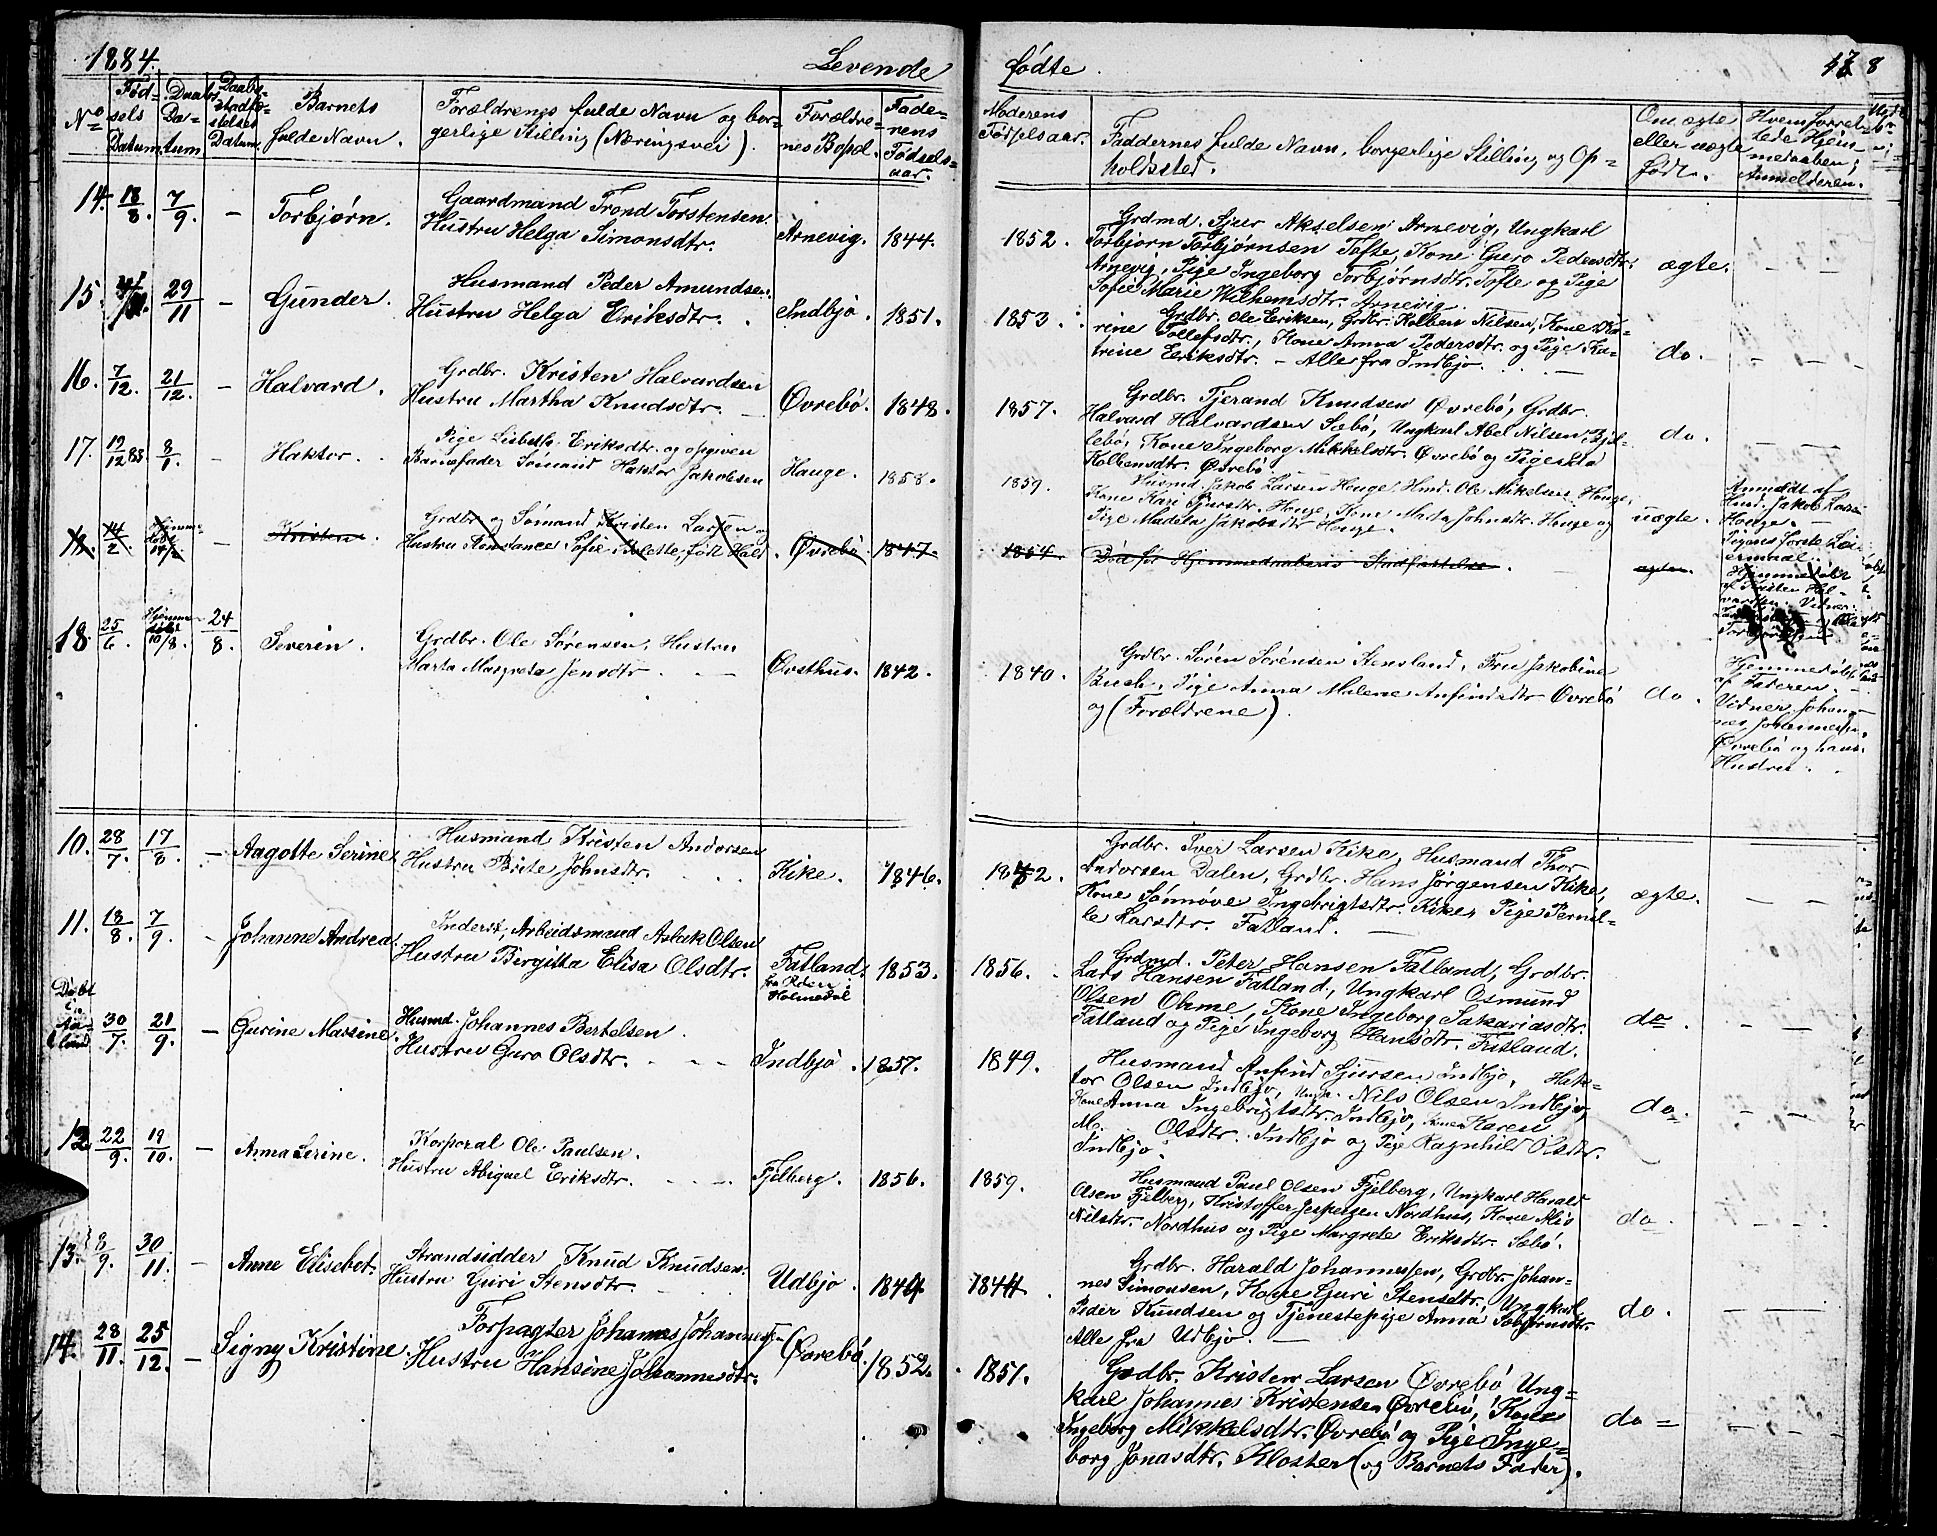 1884.
Levende
fødte.
8
No
Fød-
sels
Datum.
Daabs
Da-
tum.
Daabs-
stadfæ-
stelses
Datum.
Barnets
fulde Navn.
Forældrenes fulde Navn og bor-
gerlige Stilling (Næringsvei).
Forældre-
nes Bopæl.
Fade-
rens
Fødsels-
aar.
Moderens
Fødselsaar.
Faddernes fulde Navn, borgerlige Stilling og Op-
holdssted.
Om ægte
eller uægte
født.
Hvem forret-
tede Hjem-
medaaben;
Anmelderen.
14. 18/8. 7/9. – Torbjørn.
Gaardmand Trond Torstensen.
Hustru Helga Simonsdtr.
Arnevig. 1844.
1852.
Grdmd. Sjur Akselsen Arnevig, Ungkarl
Torbjørn Torbjørnsen Tofte, Kone Guro Pedersdtr.
Arnevig, Pige Ingeborg Torbjørnsdtr. Tofte og Pige
Sofie Marie Wilhemsdtr. Arnevig.
ægte. – –
15. 29/11 – Gunder.
Husmand Peder Amundsen.
Hustru Helga Eriksdtr.
Indbjo. 1851.
1853.
Grdbr. Ole Eriksen, Grdbr. Kolben Nilsen, Kone Ka-
rine Tollefsdtr., Kone Anna Pedersdtr. og Pige Ka-
trine Eriksdtr. – Alle fra Indbjo.
do. – –
16. 7/12. 21/12. – Halvard.
Grdbr. Kristen Halvardsen
Hustru Martha Knudsdtr.
Øvrebö. 1848.
1857.
Grdbr. Tjerand Knudsen Øvrebö, Grdbr.
Halvard Halvardsen Sæbö, Ungkarl Abel Nilsen Bjel-
lebö, Kone Ingeborg Mikkelsdtr. Øvrebö og Pige
Kolbensdtr. Øvrebö
do. – –
17. 12/12 83. 8/1. – Haktor.
Pige Lisbeth Eriksdtr. og opgiven
Barnefader Sömand Haktor Jakobsen
Hauge. 1858.
1859.
Husmd. Jakob Larsen Hauge, Hmd. Ole Mikelsen Hauge,
Kone Kari Sjursdtr. Hauge, Kone Mada Johnsdtr. Hauge og
Pige Madela Jakobsdtr. Hauge.
uægte.
Anmeldt af
Husd. Jakob Larsen
Hauge. –
Pigens første Lei-
ermaal.
18. 14/2 Hjemme-
døbt – Kristen.
Grdbr. og Sömand Kristen Larsen og
Hustru Konstance Sofie Bolette født Hald.
Øvrebö 1847.
1854.
Död för Hjemmedaabens Stadfæstelse.
ægte.
Hjemmedøbt
af Kristen Hal-
vardsen. Vidner:
18. 25/6. Hjemme-
døbt
10/8. 24/8. Severin.
Grdbr. Ole Sørensen, Hustru
Marta Margreta Jensdtr.
Øvsthus. 1842.
1840.
Grdbr. Søren Sørensen Stensland, Fru Jakobine
Buch, Pige Anna Malene Anfindsdtr. Øvrebö
og (Forældrene).
do.
Hjemmedøbt
af Faderen.
Vidner Johan-
nes Johannessen,
Øvrebö og hans
Hustru.
10. 28/7. 17/8. – Aagotte Serine
Husmand Kristen Andorsen
Hustru Brite Johnsdtr.
Kike. 1846.
1842.
Grdbr. Iver Larsen Kike, Husmand Thor
Andorsen Dalen, Grdbr. Hans Jørgensen Kike,
Kone Sönnöve Ingebrigtsdtr. Kike, Pige Pernil-
le Larsdtr. Fatland.
ægte. – –
11. 18/8. 7/9. – Johanne Andrea.
Inderst, Arbeidsmand Aslak Olsen
Hustru Birgitta Elisa Olsdtr.
Fatland.
Holmedal
1853.
1856.
Grdmd. Peter Hansen Fatland, Grdbr.
Lars Hansen Fatland, Ungkarl Osmund
Olsen Olsme, Kone Ingeborg Sakariasdtr.
Fatland og Pige Ingeborg Hansdtr. Fatland.
do. – –
Döbt
i
30/7. 21/9. – Gurine Marsine.
Husmd. Johannes Bertelsen.
Hustru Guro Olsdtr.
Indbjo. 1857.
1849.
Husmand Anfind Sjursen Indbjo, Hak-
tor Olsen Indbjo, Ungk. Nils Olsen Indbjo,
Kone Anna Ingebrigtsdtr. Indbjo, Kone Karen
M. Olsdtr. Indbjo og Pige Ragnhild Olsdtr.
Indbjo.
do. – –
12. 22/9. 19/10. – Anna Serine.
Korporal Ole Paulsen.
Hustru Abigael Eriksdtr.
Fjelberg. 1856.
1859.
Husmand Paul Olsen Fjelberg, Ungkarl Harald
Olsen Fjelberg, Kristoffer Jespersen Nordhus, Kone
Nilsdtr. Nordhus og Pige Margrete Eriksdtr. Sæbö.
do. – –
13. 8/9. 30/11. – Anne Elisebet.
Strandsidder Knud Knudsen.
Hustru Guri Stensdtr.
Udbjo.
1844.
Grdbr. Harald Johannessen, Grdbr. Johan-
nes Simonsen, Kone Guri Stensdtr., Ungkarl
Peder Knudsen og Tjenestepige Anna
Alle fra Udbjo.
do. – –
14. 28/11. 25/12. – Signy Kristine.
Forpagter Johannes Johannessen
Hustru Hansine Johannesdtr.
Øvrebö. 1852.
1851.
Grdbr. Kristen Larsen Øvrebö, Ung-
karl Johannes Kristensen Øvrebö, Kone
Ingeborg Mikkelsdtr. Øvrebö og Pige Inge-
borg Jonasdtr. Kloster (og Barnets Fader).
do – –